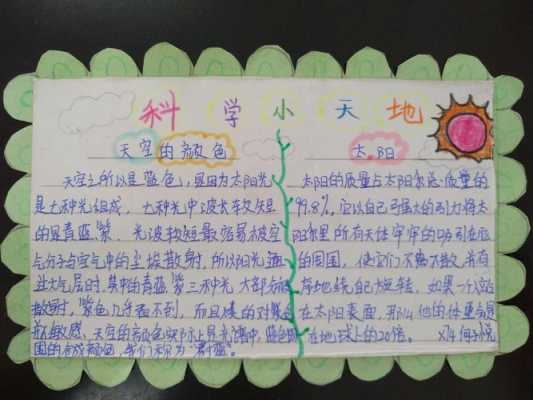 科学小天地
天空的颜色
天空之所以是蓝色，是因为太阳光
是七种光组成，七种光中波长较短
的是青蓝紫，光波较短最容易被空
气分子与空气中的尘埃散射，所以阳光
过大气层时，其中的青蓝紫三种光大部分被
散射，紫色几乎看不到，而且人的对紫色
敏感，天空的颜色实际上是光谱中，蓝色
围的合成颜色，我们称为"蔚蓝"。
太阳
太阳的质量占太阳系总质量的
99.8%，它以自己强大的引力将太
阳系里所有天体牢牢的吸引在
的周围，使它们不离不散，井有
有序地绕自己旋转，如果一个人站
在太阳表面，那么他的体重会是
在地球上的20倍。